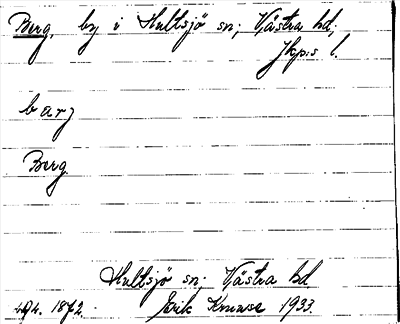 Berg, by i Hultsjö sn; Västra hd;
Jkps l.
barj
Berg
Hultsjö sn; Västra hd.
494. 1872. Erik Kruuse 1933.